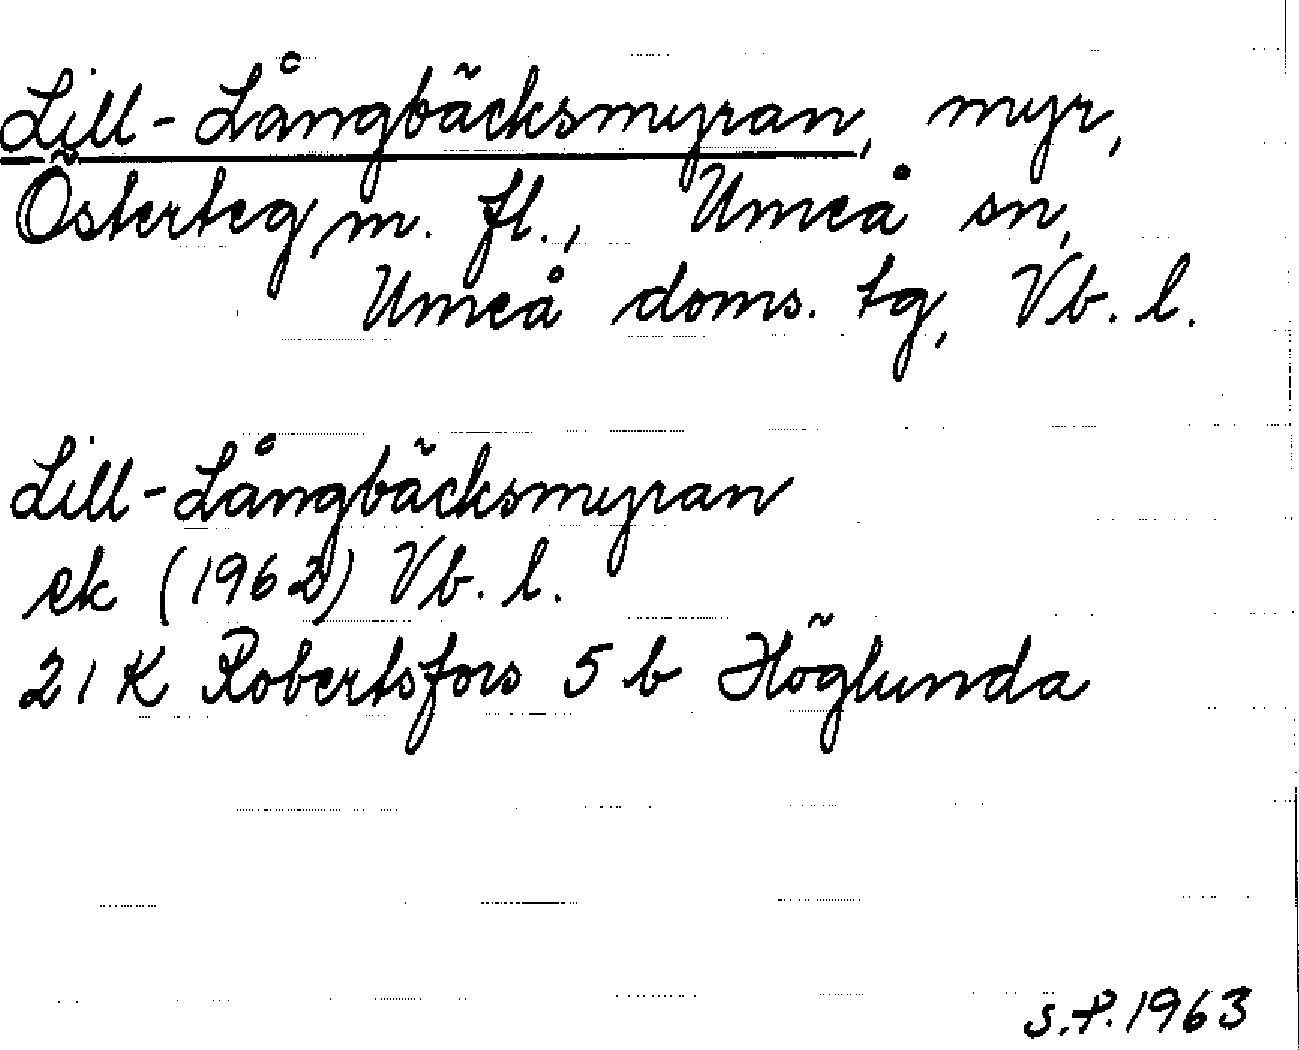 Lill-Långbäcksmyran, myr,
Österteg m. fl., Umeå sn,
Umeå doms. tg, Vb. l.
Lill-Långbäcksmyran
ek (1962) Vb. l.
21 K Robertsfors 5 b Höglunda
S.P. 1963